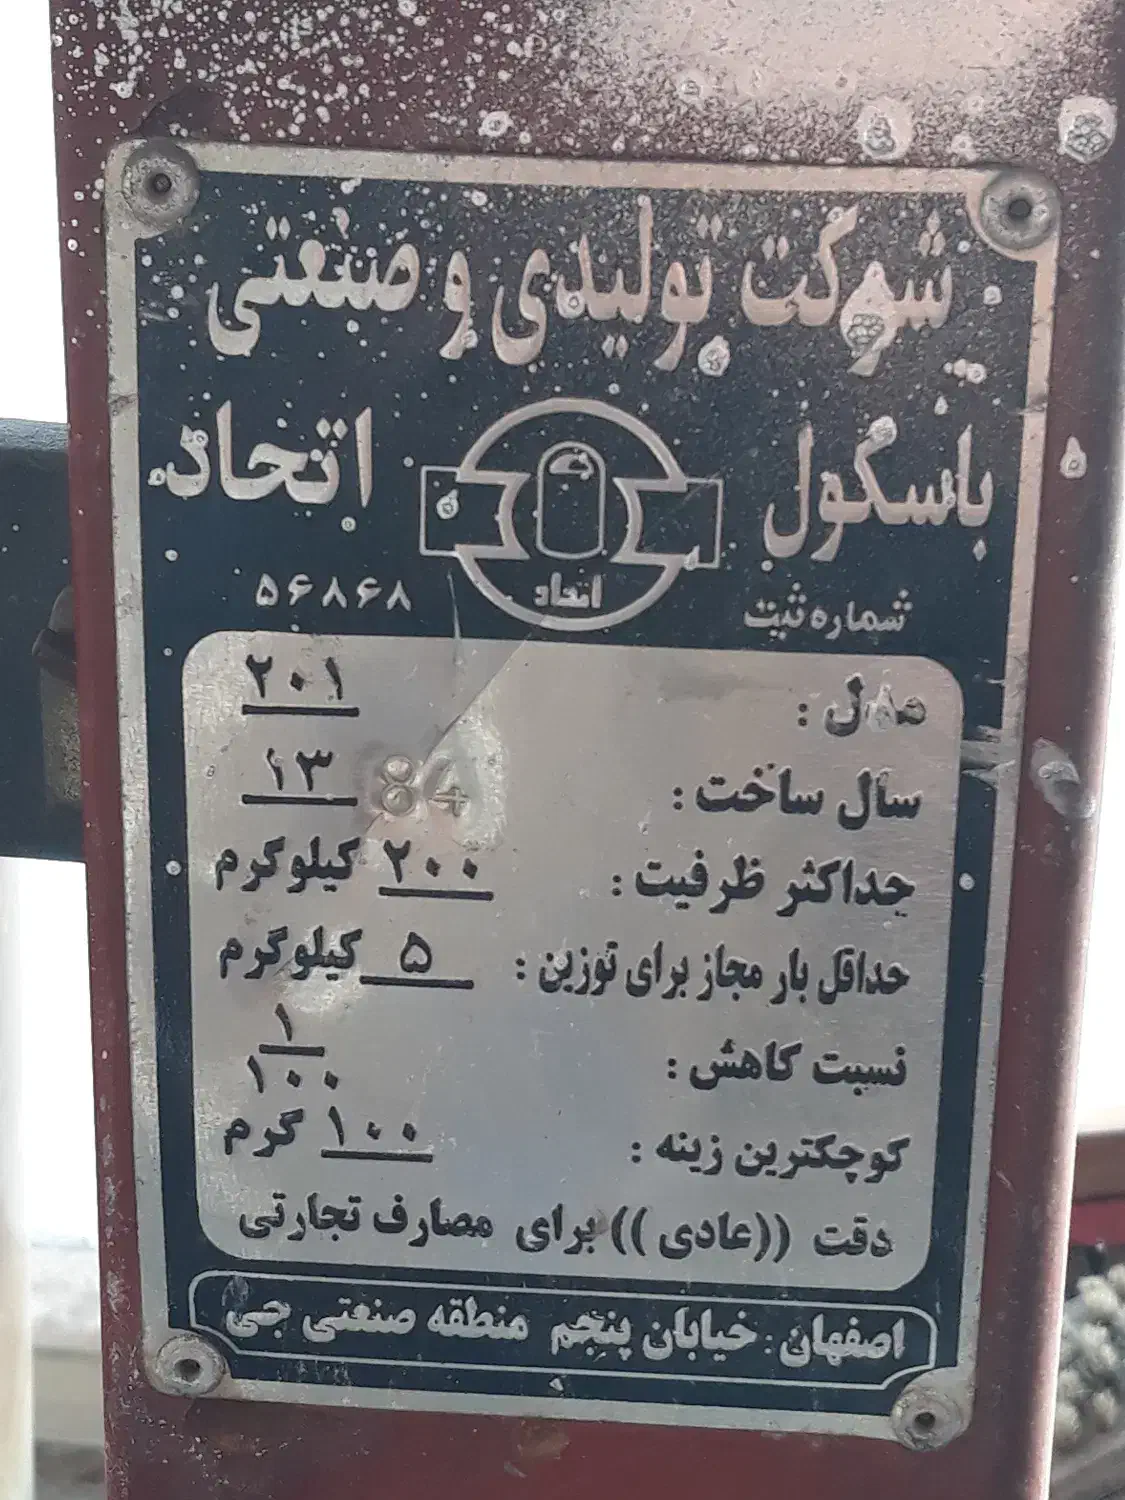 شرکت تولیدی و صنعتی
باسکول اتحاد
اتحاد
شماره ثبت ۵۶۸۶۸
مدل : ۲۰۱
سال ساخت : ۱۳ 84
حداکثر ظرفیت : ۲۰۰ کیلوگرم
حداقل بار مجاز برای توزین : ۵ کیلوگرم
نسبت کاهش : ۱/۱۰۰
کوچکترین زینه : ۱۰۰ گرم
دقت ((عادی)) برای مصارف تجارتی
اصفهان : خیابان پنجم منطقه صنعتی جی